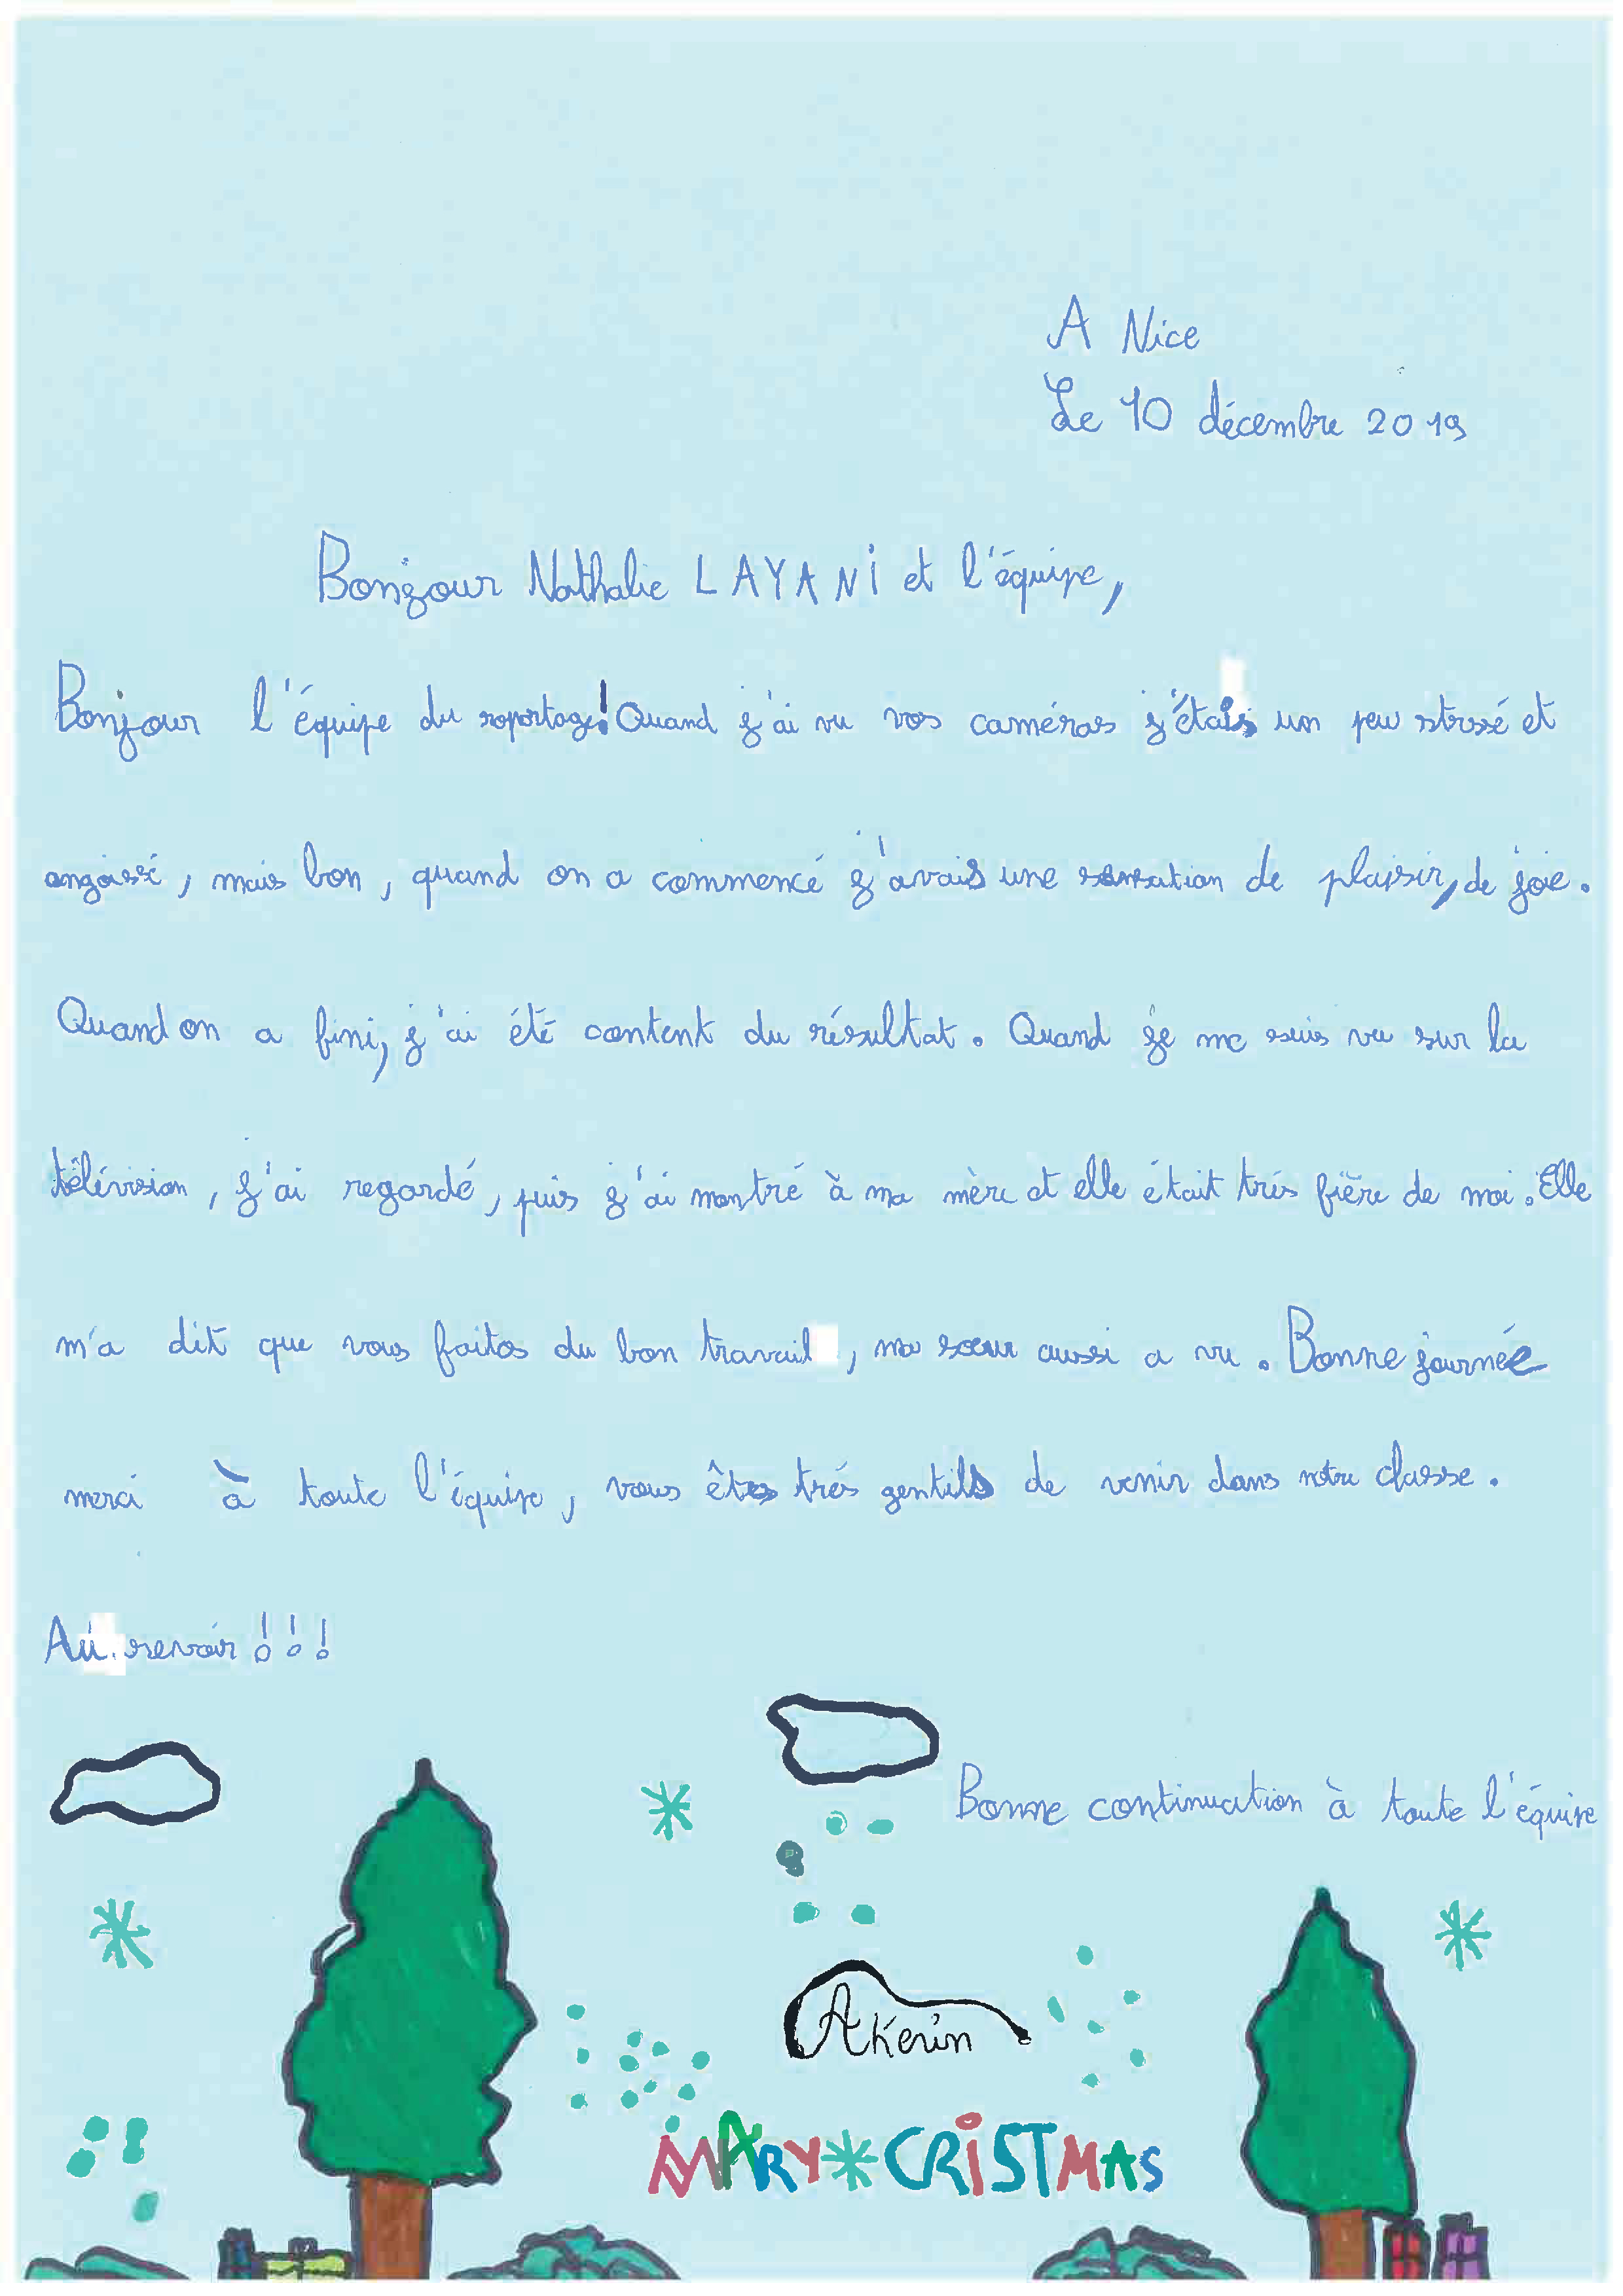 A Nice
Le 10 décembre 2019
Bonjour Nathalie LAYANi et l'équipe,
Bonjour l'équipe du reportage! Quand j'ai vu vos caméras j'étais un peu stressé et
angoissé, mais bon, quand on a commencé j'avais une sensation de plaisir, de joie.
Quand on a fini, j'ai été content du résultat. Quand je me suis vu sur la
télévision, j'ai regardé, puis j'ai montré à ma mère et elle était très fière de moi. Elle
m'a dit que vous faites du bon travail, ma sœur aussi a vu. Bonne journée
merci à toute l'équipe, vous êtes très gentils de venir dans notre classe.
Au revoir !!!
Bonne continuation à toute l'équipe
AKerim
MARY CRiSTMAS